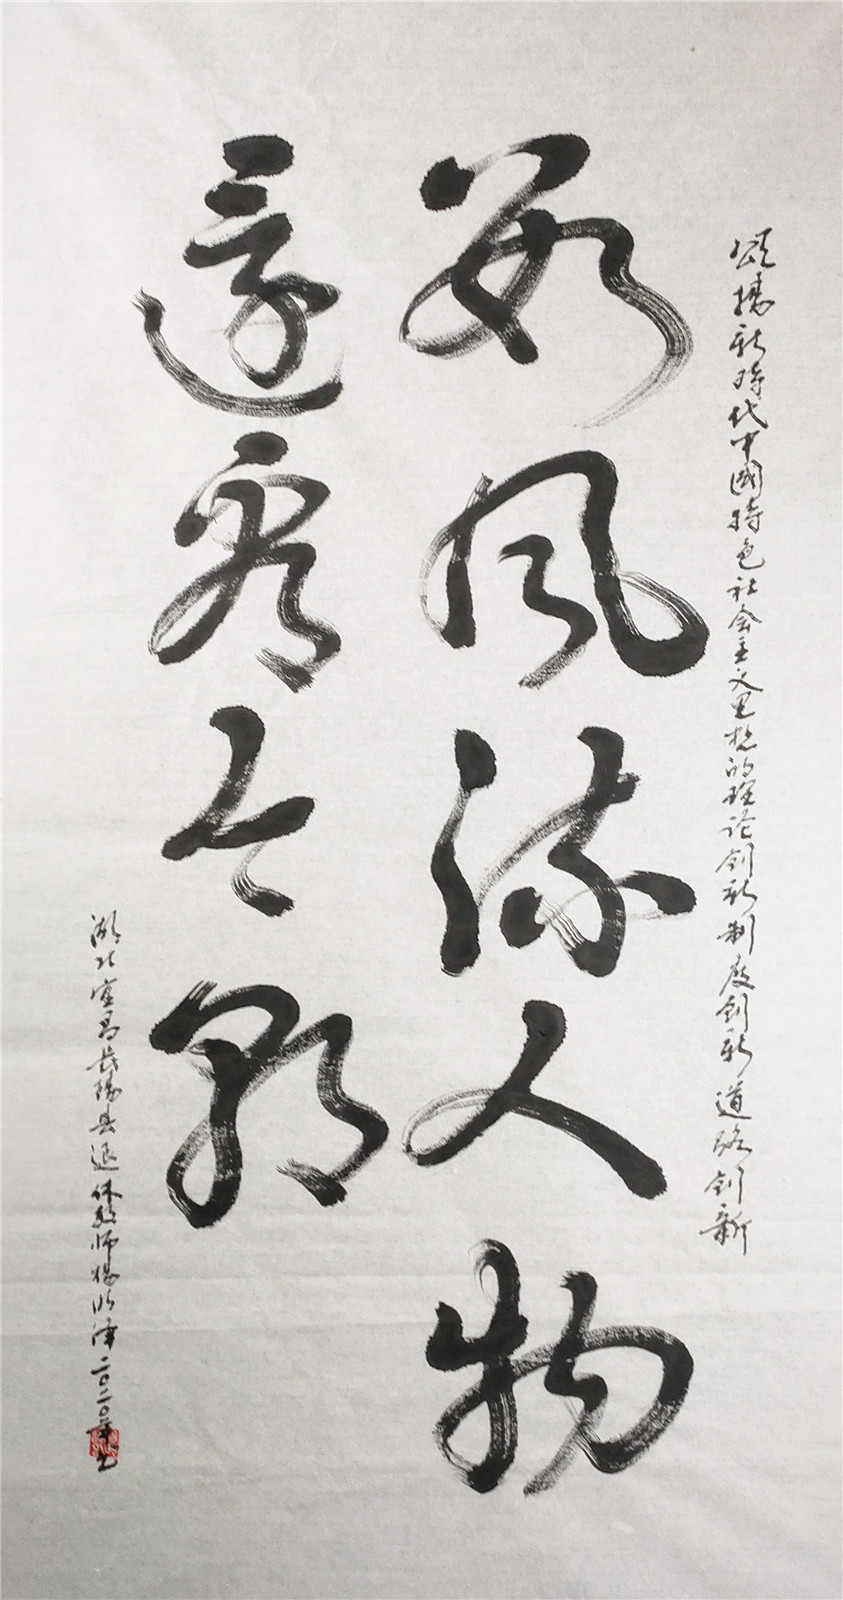 颂扬新時代中國特色社会主义思想的理论创新制度创新道路创新
数风流人物
还看今朝
湖北宜昌长陽县退休教师杨 二〇二〇年书